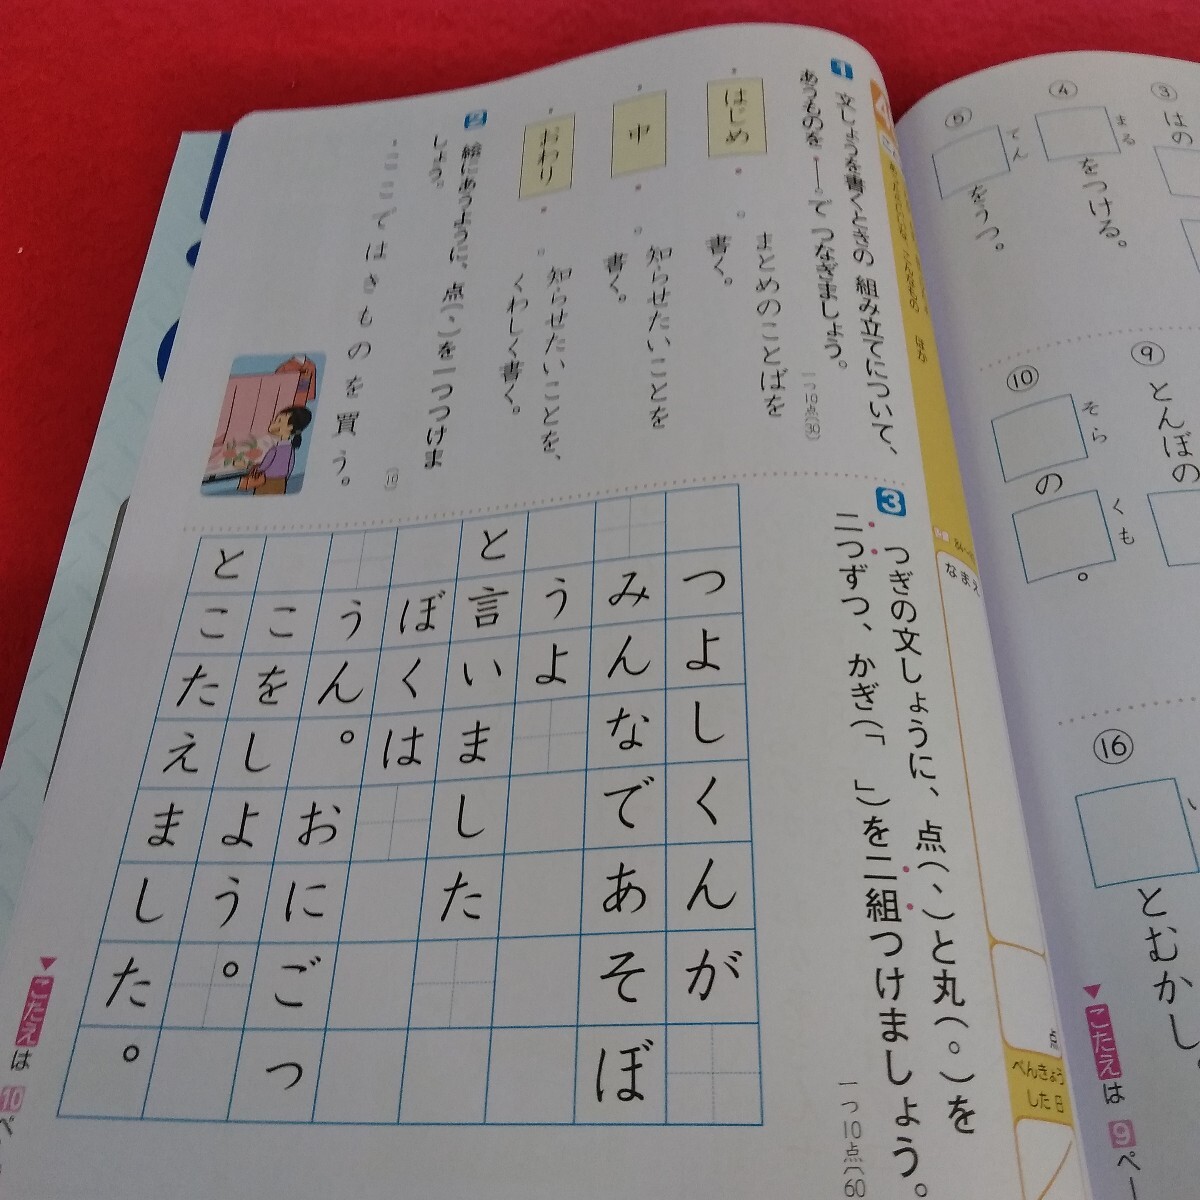 ③
はの
④
まる
をつける。
⑤
てん
をうつ。
⑨
とんぼの
⑩
そら
の
くも
。
⑯
とむかし。
▼こたえは 9 ペー
4
ほか
なまえ
点
べんきょう
した日
1 文しょうを書くときの 組み立てについて、
あうものを ―― で つなぎましょう。
一つ10点(30)
はじめ
中
おわり
まとめのことばを
書く。
知らせたいことを
書く。
知らせたいことを、
くわしく書く。
2 絵にあうように、点(、)を一つつけま
しょう。
(10)
ここではきものを買う。
3 つぎの文しょうに、点(、)と丸(。)を
二つずつ、かぎ(「 」)を二組つけましょう。
一つ10点(60
つよしくんが
みんなであそぼ
うよ
と言いました
ぼくは
うん。おにごっ
こをしよう。
とこたえました。
▼こたえは 10 ペ